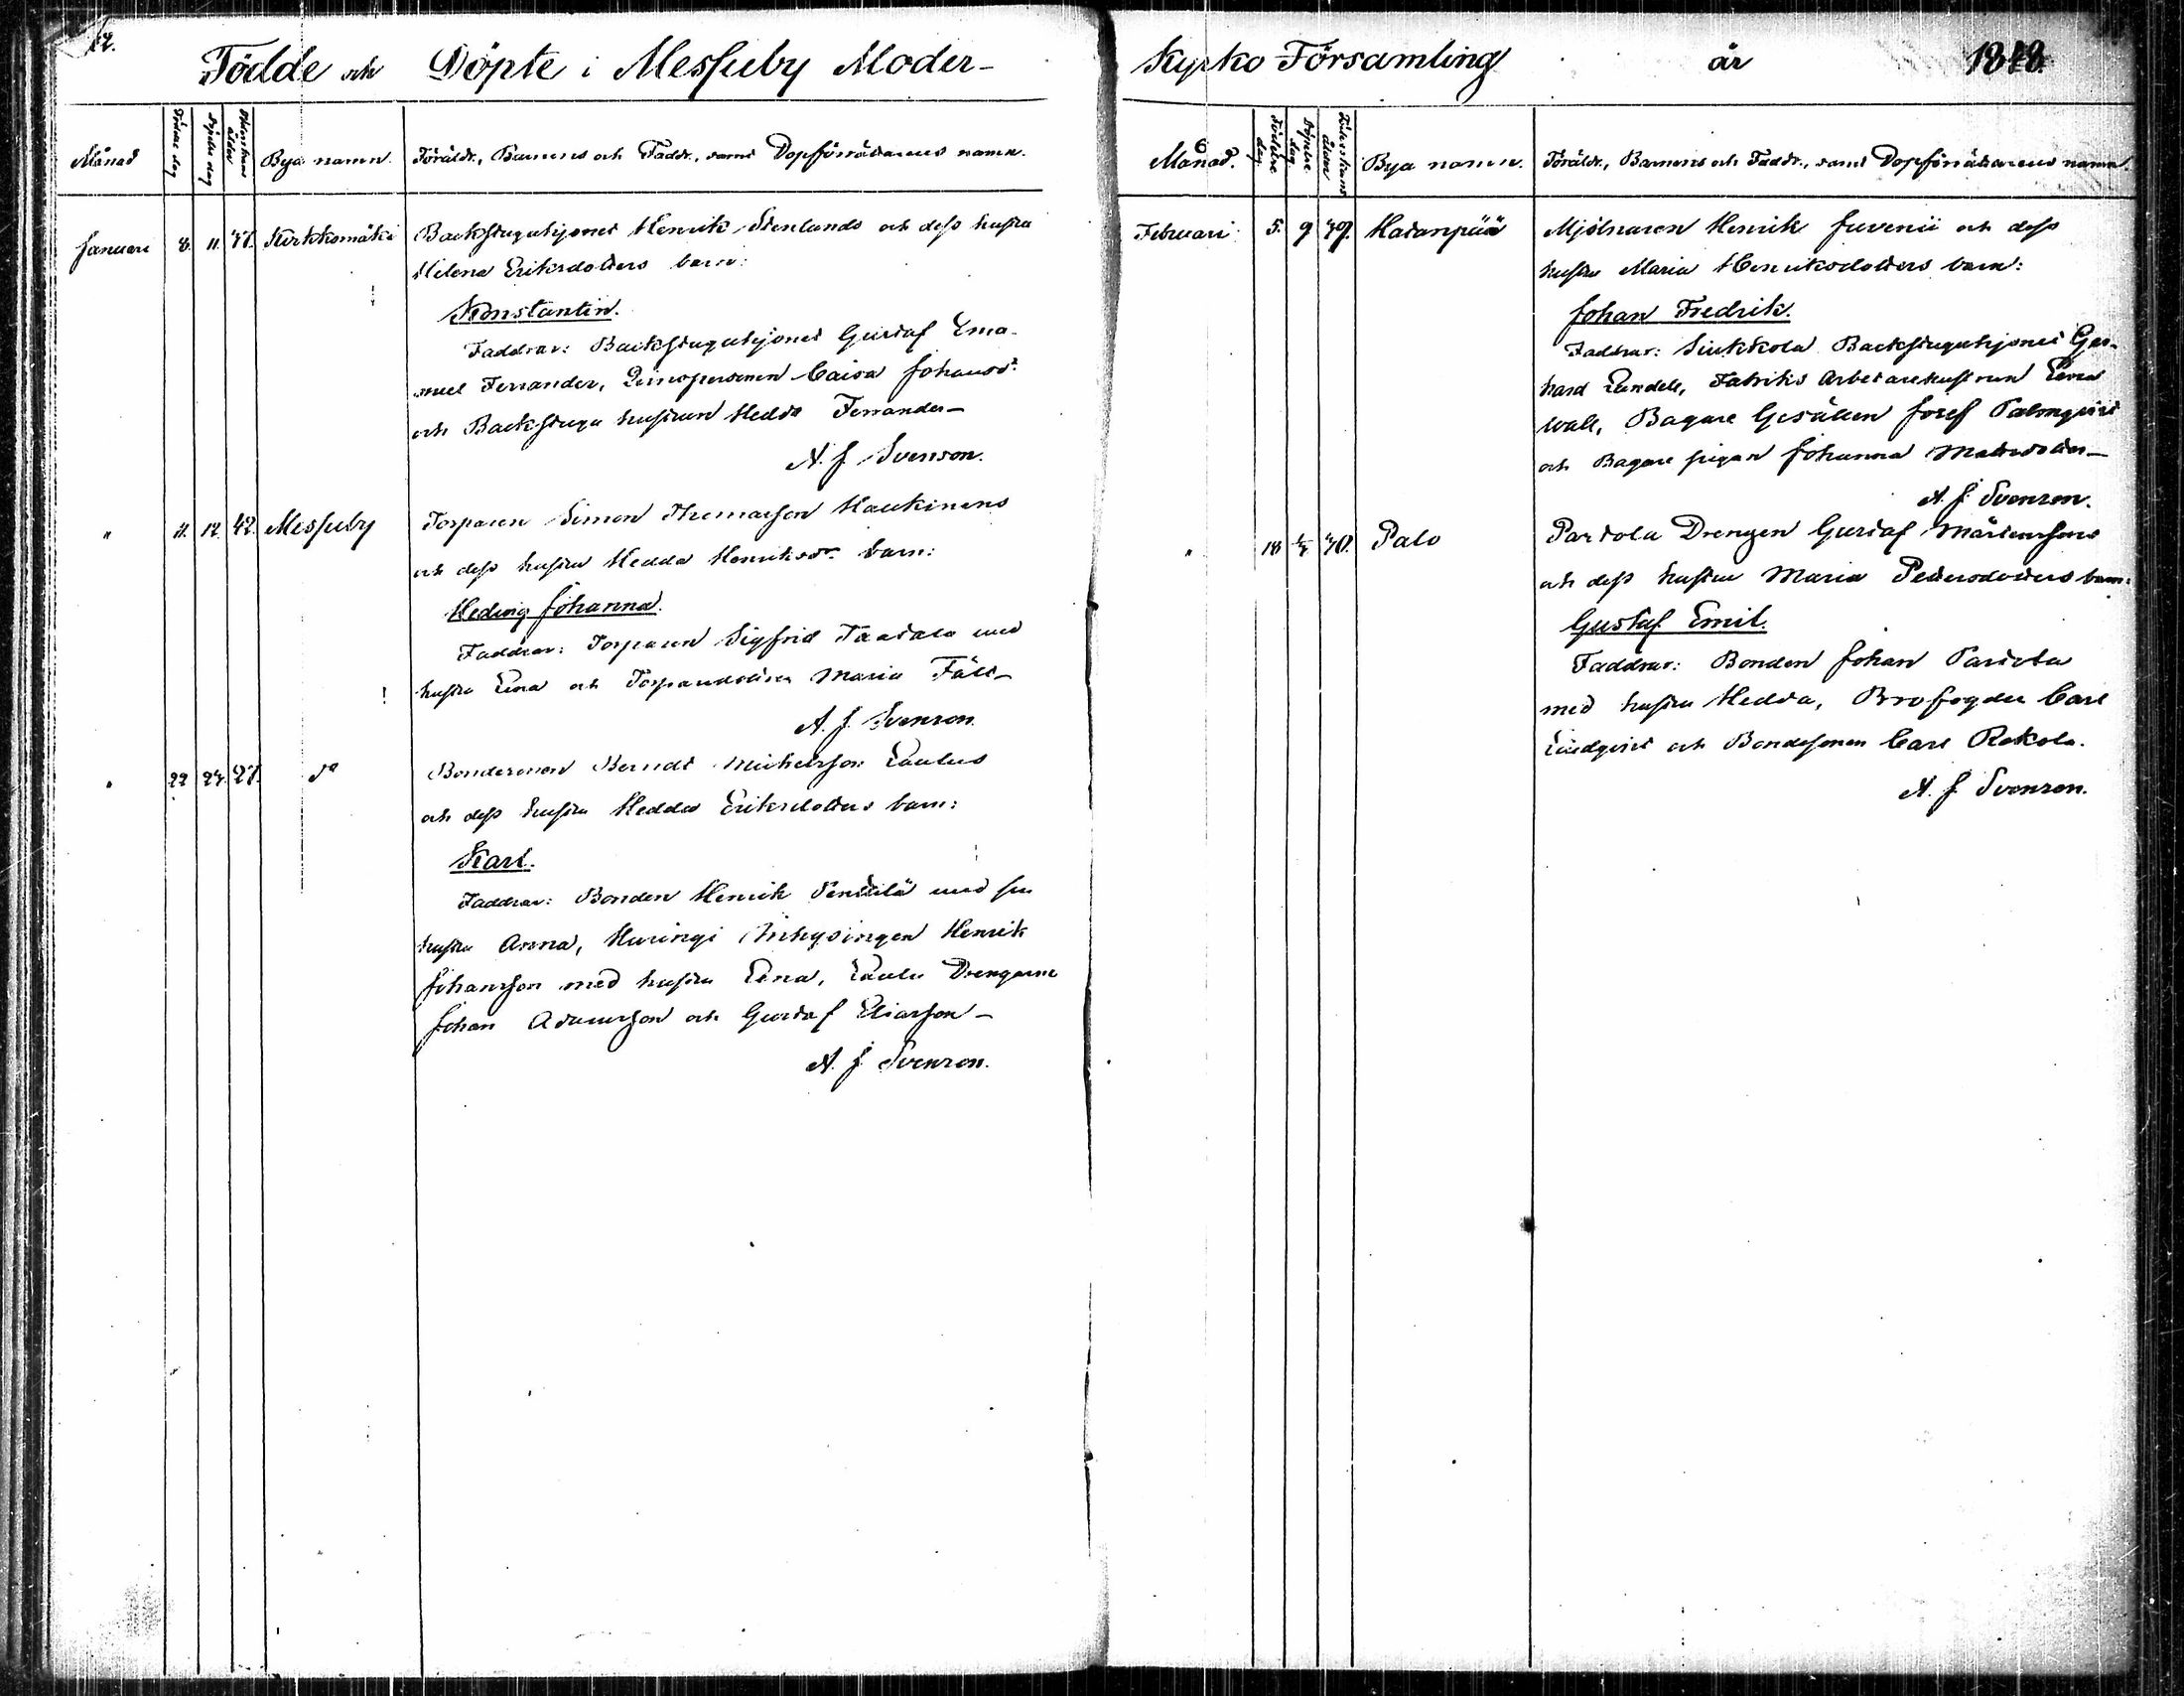 12.
Födde och Döpte i Messuby Moder-
Månad Födelse dag Döpelse dag Föderskans ålder Bya namn. Föräldr., Barnens och Faddr., samt Dopförrättarens namn.
Januari 8. 11. 41. Kirkkomäki Backstuguhjonet Henrik Stenlunds och dess hustru
Helena Eriksdotters barn:
Konstantin.
Faddrar: Backstuguhjonet Gustaf Ema-
nuel Ferrander, Qvinopersonen Caisa Johansdr
och Backstugu hustrun Hedda Ferrander—
A. J. Svenson.
" 11. 12. 42. Messuby Torparen Simon Thomasson Haukinens
och dess hustru Hedda Henriksdr barn:
Hedvig Johanna.
Faddrar: Torparen Sigfrid Taatala med
hustru Lena och Torparedottren Maria Fält—
A. J. Svenson.
" 22 24. 27. do Bondesonen Berndt Michelsson Laulus
och dess hustru Hedda Eriksdotters barn:
Karl.
Faddrar: Bonden Henrik Penttilä med sin
hustru Anna, Huringi Inhysingen Henrik
Johansson med hustru Lena, Laulu Drengarne
Johan Adamsson och Gustaf Eliasson—
A. J. Svenson.
Kyrko Församling år 1848.
Månad. Födelse dag Döpelse dag Föderskans ålder Bya namn. Föräldr., Barnens och Faddr., samt Dopförrättarens namn.
Februari 5. 9 39. Hatanpää Mjölnaren Henrik Juvenii och dess
hustru Maria Henriksdotters barn:
Johan Fredrik.
Faddrar: Siukkola Backstuguhjonet Ger-
hard Lundell, Fabriks Arbetarehustrun Lena
Wall, Bagare Gesällen Josef Palmqvist
och Bagare pigan Johanna Matsdotter—
A. J. Svenson.
" 18 30. Palo Partola Drengen Gustaf Mårtenssons
och dess hustru Maria Petersdotters barn:
Gustaf Emil.
Faddrar: Bonden Johan Partola
med hustru Hedda, Brofogden Carl
Lindqvist och Bondesonen Carl Rokola.
A. J. Svenson.